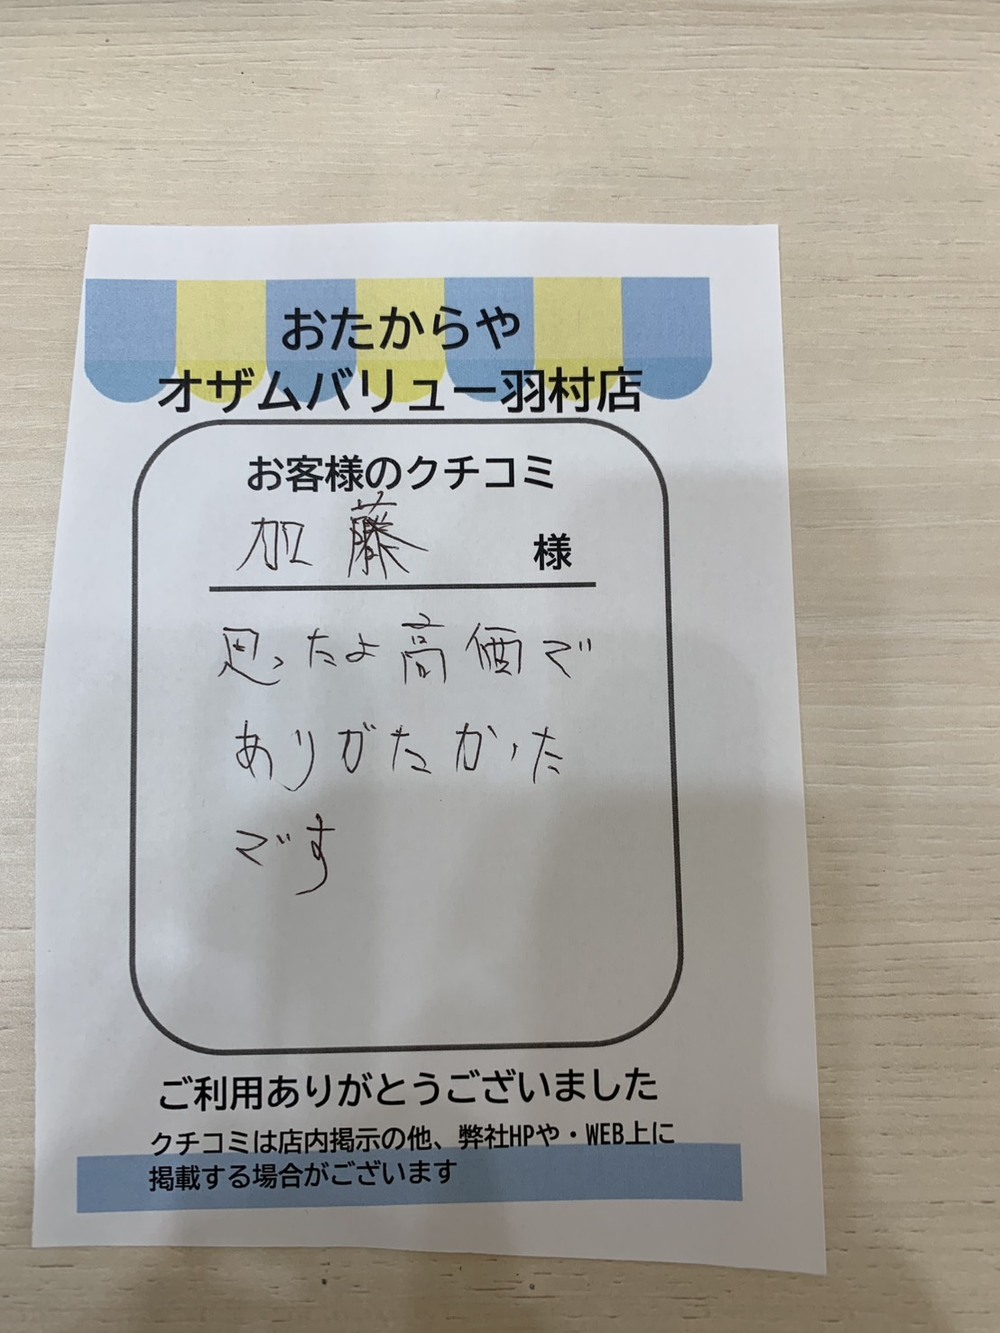 おたからや
オザムバリュー羽村店
お客様のクチコミ
加藤 様
思ったよ高価で
ありがたかった
です
ご利用ありがとうございました
クチコミは店内掲示の他、弊社HPや・WEB上に
掲載する場合がございます